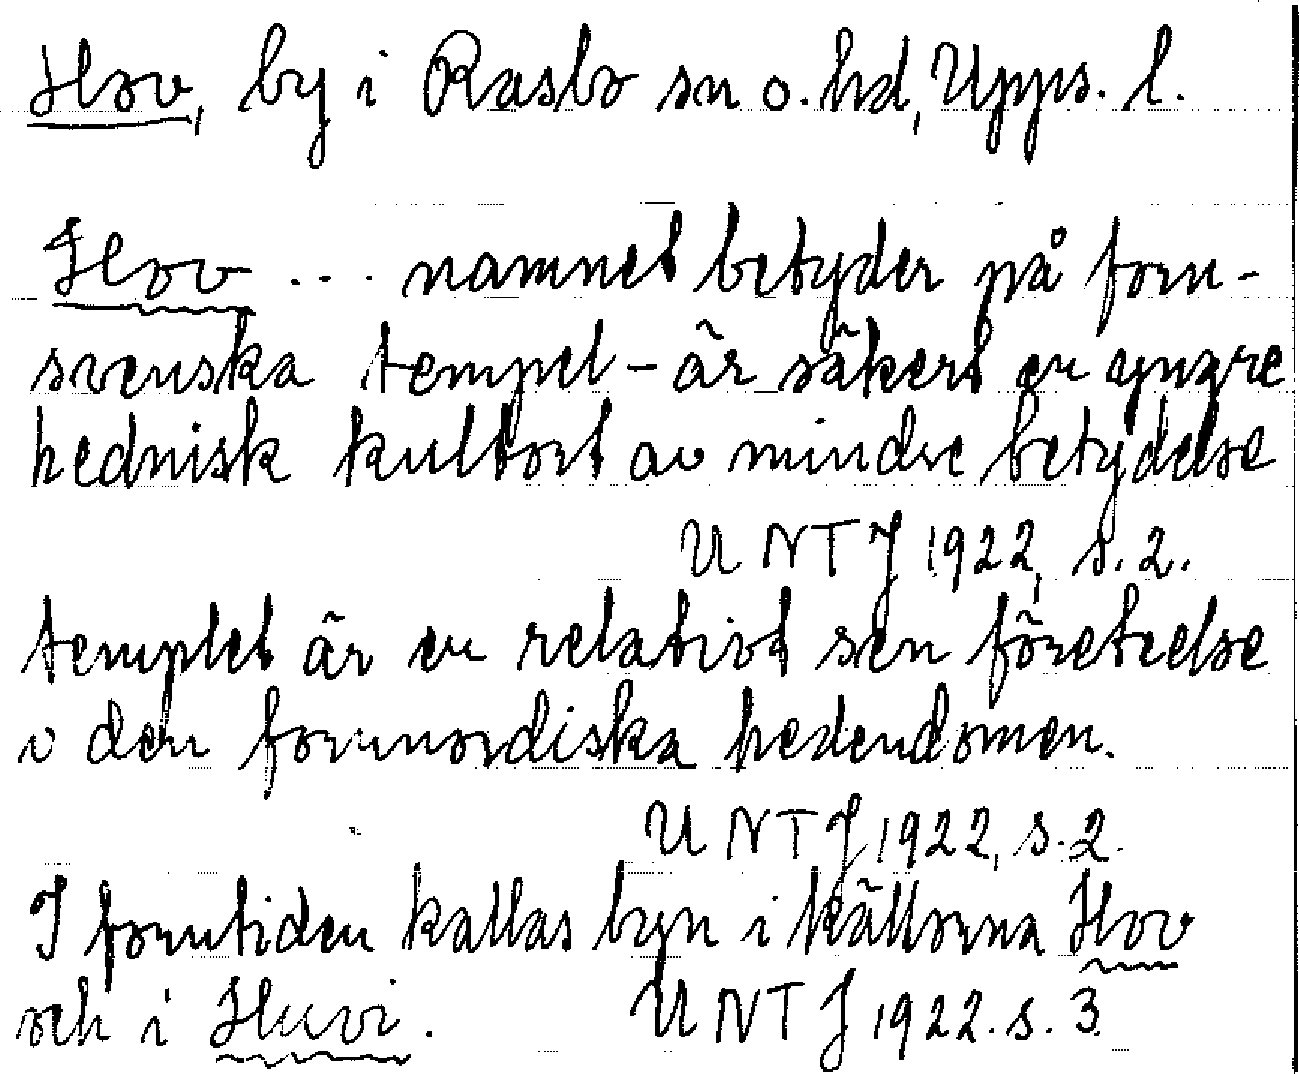 Hov, by i Rasbo sn o. hd, Upps. l.
Hov ... namnet betyder på forn-
svenska tempel – är säkert en yngre
hednisk kultort av mindre betydelse
UNTJ 1922, s. 2.
templet är en relativt sen företeelse
i den fornnordiska hedendomen.
UNTJ 1922, s. 2.
I forntiden kallas byn i källorna Hov
och i Huvi. UNTJ 1922. s. 3